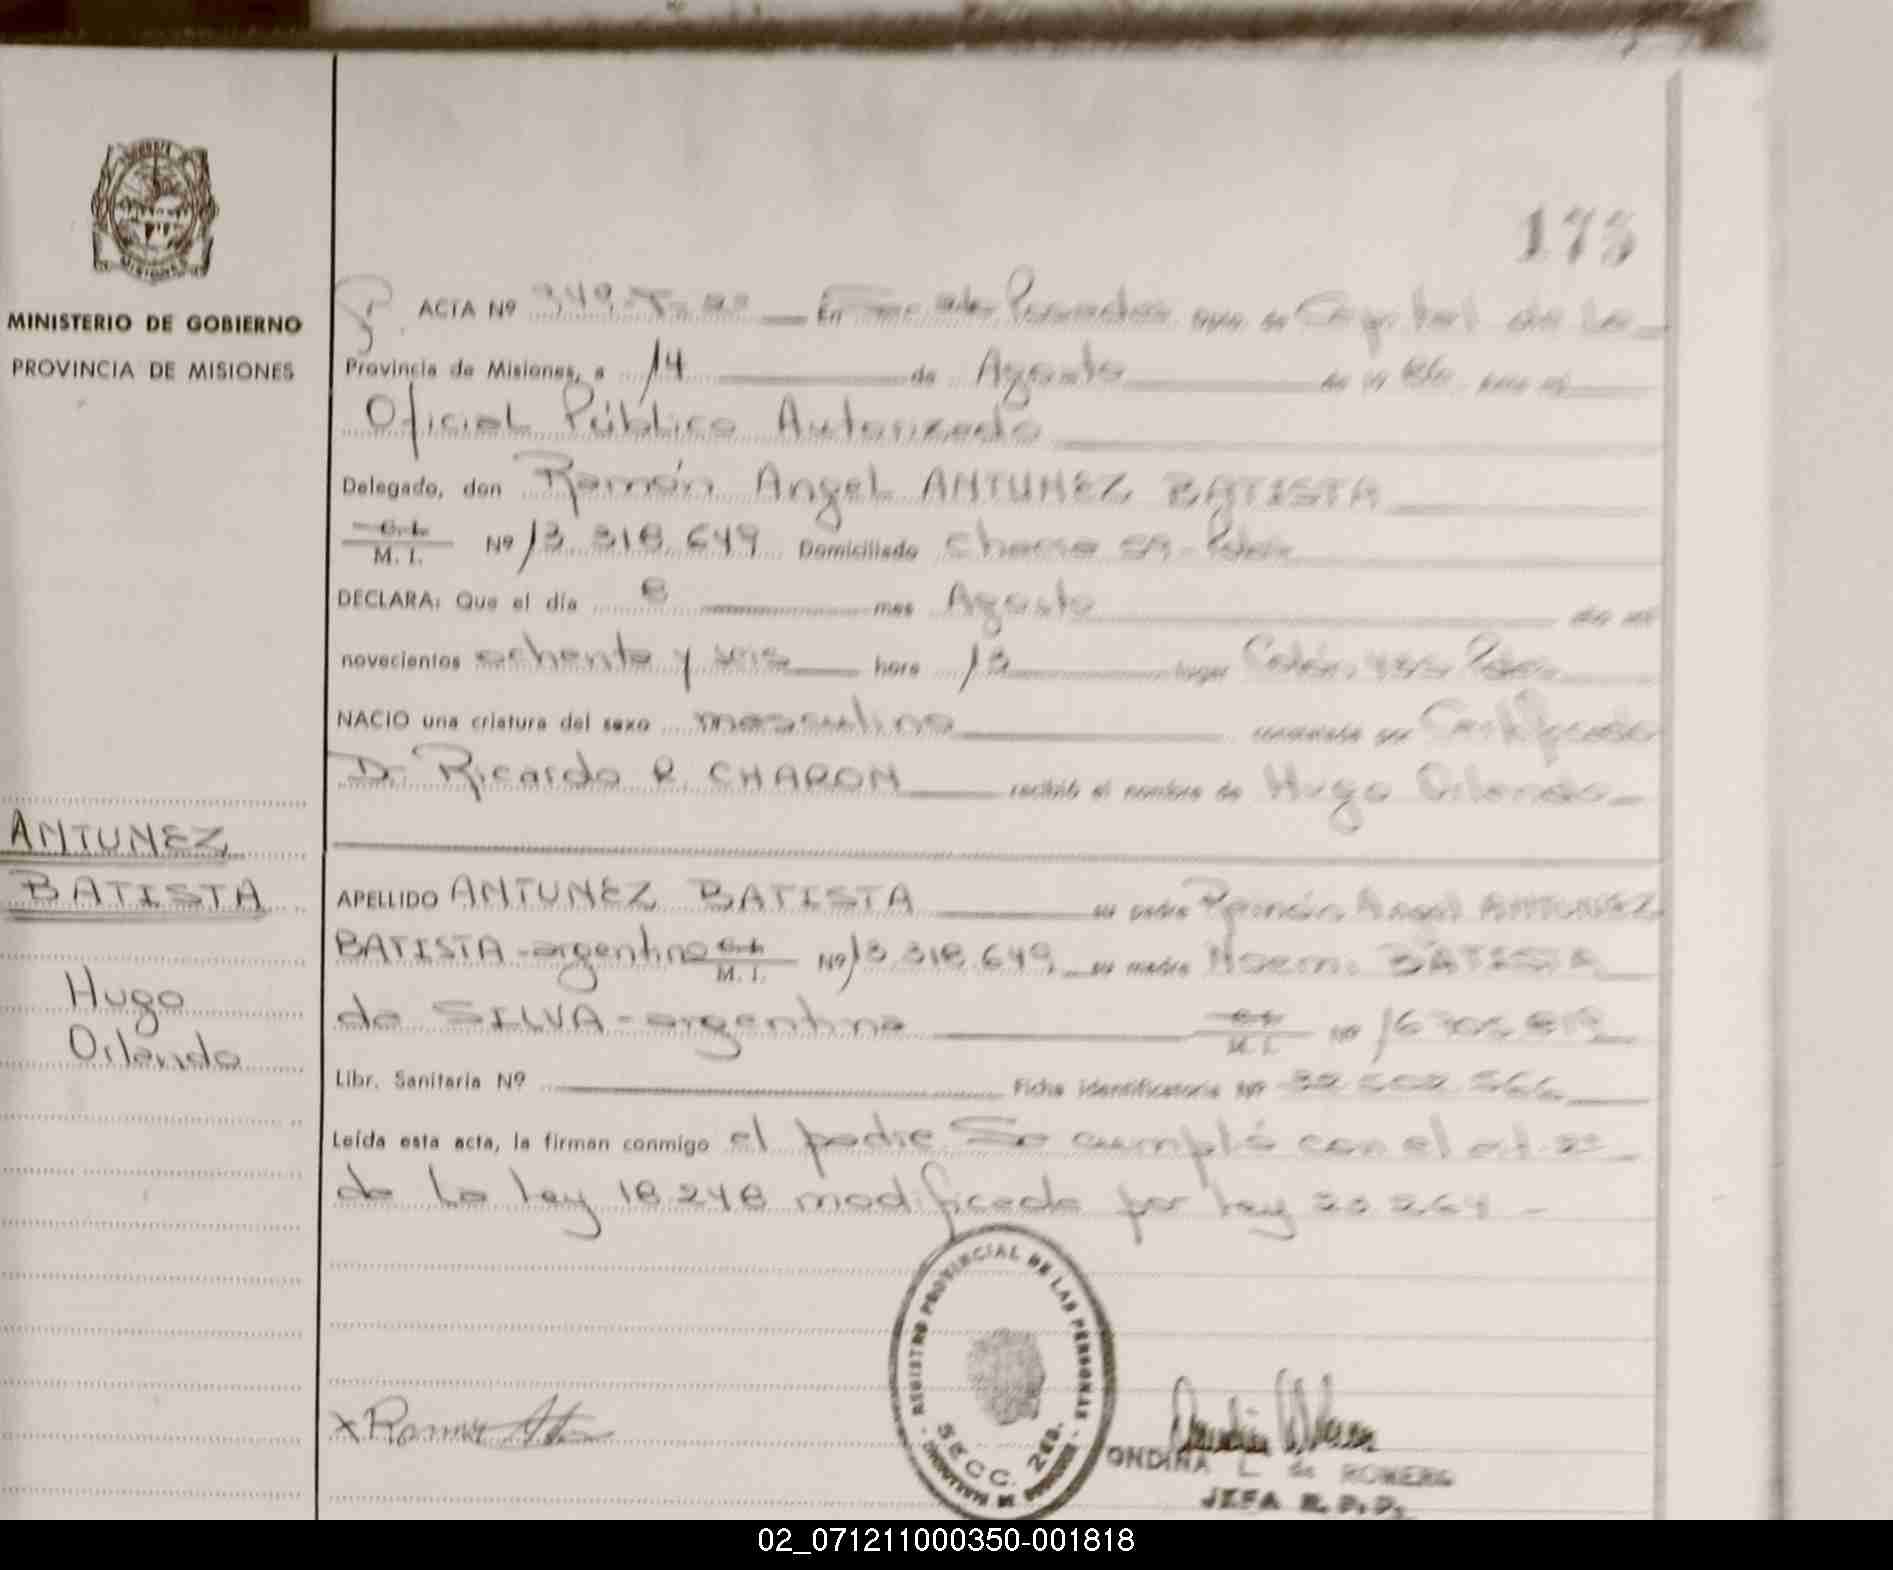 173
MINISTERIO DE GOBIERNO
PROVINCIA DE MISIONES
ACTA Nº 349 En Posadas Capital de la
Provincia de Misiones, a 14 de Agosto de 19 86 ante mí
Oficial Público Autorizado
Delegado, don Ramón Angel ANTUNEZ BATISTA
C.I. M. I. Nº 13.318.649 Domiciliado Chacra
DECLARA: Que el día 8 mes Agosto de mil
novecientos ochenta y seis hora 13 lugar Colón
NACIO una criatura del sexo masculino Certificado
Dr. Ricardo R. CHARON recibió el nombre de Hugo Orlando
ANTUNEZ
BATISTA
Hugo
Orlando
APELLIDO ANTUNEZ BATISTA su padre Ramón Angel ANTUNEZ
BATISTA - argentino C.I. M. I. Nº 13.318.649 su madre Noemi BATISTA
da SILVA - argentina C.I. M. I. Nº
Libr. Sanitaria Nº Ficha identificatoria Nº
Leída esta acta, la firman conmigo el padre Se cumplió con el art 2º
de la ley 18.248 modificada por ley 23.264 -
REGISTRO PROVINCIAL DE LAS PERSONAS
SECC. 2da.
ONDINA L de ROMERO
JEFA R. P. P.
02_071211000350-001818